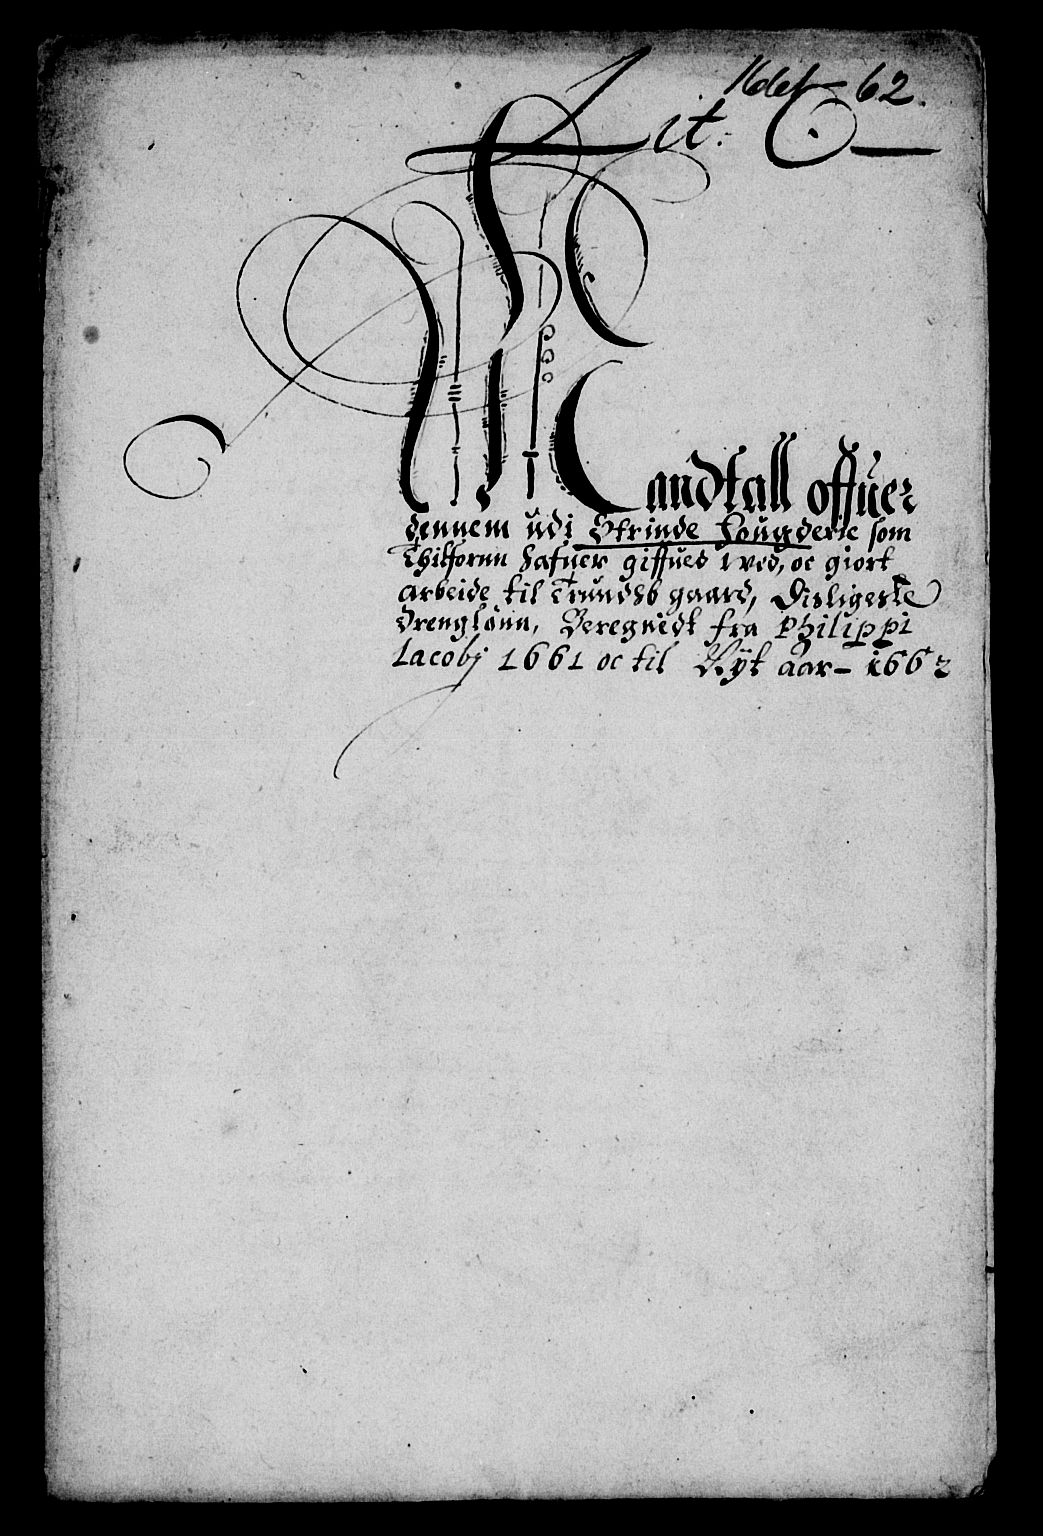 16 61 – 62.
Lit: C
Mandtall offuer
dennem udi Strinde Fougderie som
Thilfornn hafuer giffued i ved, oc giort
arbeide til Trundhb gaard, Disligeste
Drenglönn, Beregnidt fra Philippi
Iacobj 1661 oc til Nÿt aar – 1662